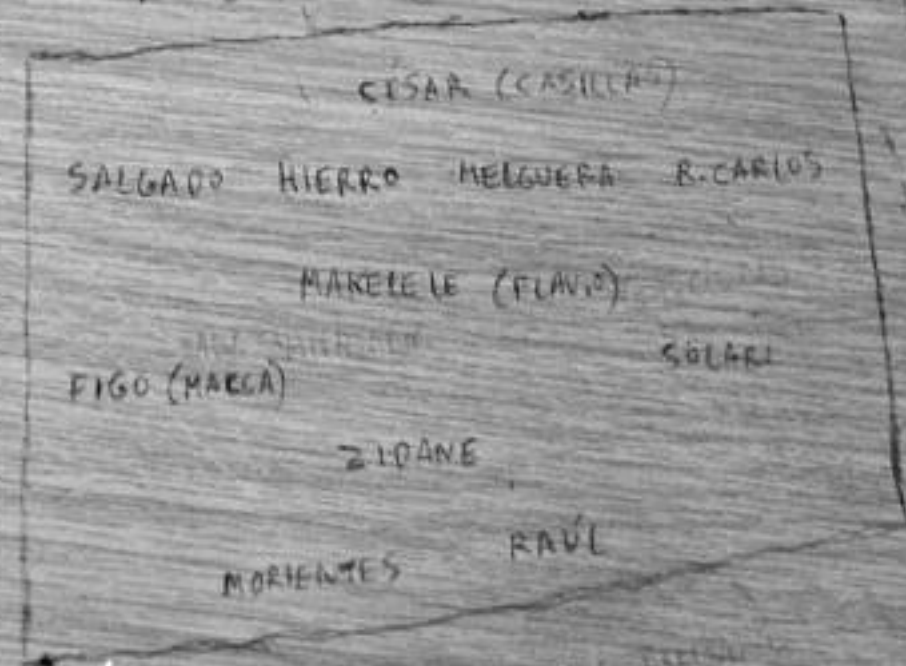 CÉSAR (CASILLAS)
SALGADO HIERRO HELGUERA R. CARLOS
MAKELELE (FLAVIO)
SOLARI
FIGO (MARCA)
ZIDANE
RAÚL
MORIENTES